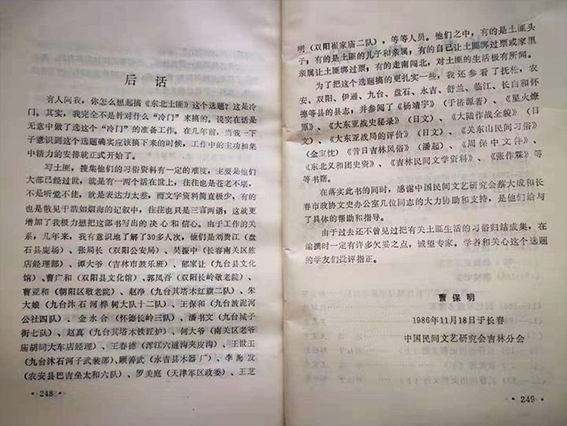 后话
有人问我，你怎么想起搞《东北土匪》这个选题？这是冷
门。其实，我完全不是针对什么“冷门”来搞的。说实在话是
无意中做了选这个“冷门”的准备工作。在几年前，当我一下
子意识到这个选题确实应该搞下来的时候，工作中的主功和集
中精力的安排就正式开始了。
写土匪，搜集他们的习俗资料有一定的难度：主要是他们
大部已经过世，就是有一两个活在世上，往往也是苍老不堪，
不是听觉不佳，就是表达力太差，而文字资料简直极少，有的
也是散见于浩如烟海的记叙中，往往也只是三言两语，这就更
增加了我极力想把这部书写出的决心和信心。由于工作的关
系，几年来，我有意识地了解了30多人次，他们是刘贵江（盘
石县寇场）、张局长（双阳公安局）、吴振中（长春南关区旅
店经理部）、谭大爷（吉林市敲乐班）、郁家让（九台县文化
馆）、曹广和（双阳县文化馆）、郭凤香（双阳长岭敬老院）、
曹亚和（朝阳区敬老院）、赵珍（九台其塔木红旗二队）、朱
大娘（九台沐石河桦树大队十二队）、王保和（九台波泥河
公社四队）、金永合（怀德长岭三队）、潘书文（九台城子
街七队）、赵真（九台其塔木铁匠炉）、何大爷（南关区老爷
庙胡同大车店经理）、王春德（浑江六道沟夹皮沟）、王世玉
（九台沐石河子武装部）、顾善武（永吉县木器厂）、李为发
（农安县巴吉垒太和六队）、罗美庭（天津军区政委）、王艺
·248·
明（双阳崔家庙二队），等等人员。他们之中，有的是土匪头
子，有的是土匪的儿子和亲属，有的自己让土匪绑过票或家里
亲属让土匪绑过票；有的走南闯北，对土匪的生活极有所闻。
为了把这个选题搞的更扎实一些，我还参看了抚松、农
安、双阳、伊通、九台、盘石、永吉、舒兰、临江、长白和怀
德等县的县志，并参阅了《杨靖宇》（于济源著）、《星火燎
原》、《大东亚战史秘录》（日文）、《大陆作战全貌》（日
文）、《大东亚战局的评价》（日文）、《关东山民间习俗》
（金宝忱）、《昔日吉林风俗》（潘起）、《周保中文抄》、
《东北义和团史资》、《吉林民间文学资料》、《张作霖》等
等书籍。
在落实此书的同时，感谢中国民间文艺研究会蔡大成和长
春市政协文史办公室几位同志的大力协助和支持，是他们给与
了具体的帮助和指导。
由于过去还不曾见到过把有关土匪生活的习俗归结成集，在
编撰时一定有许多欠妥之点，诚望专家，学者和关心这个选题
的学友们批评指正。
曹保明
1986年11月18日于长春
中国民间文艺研究会吉林分会
·249·